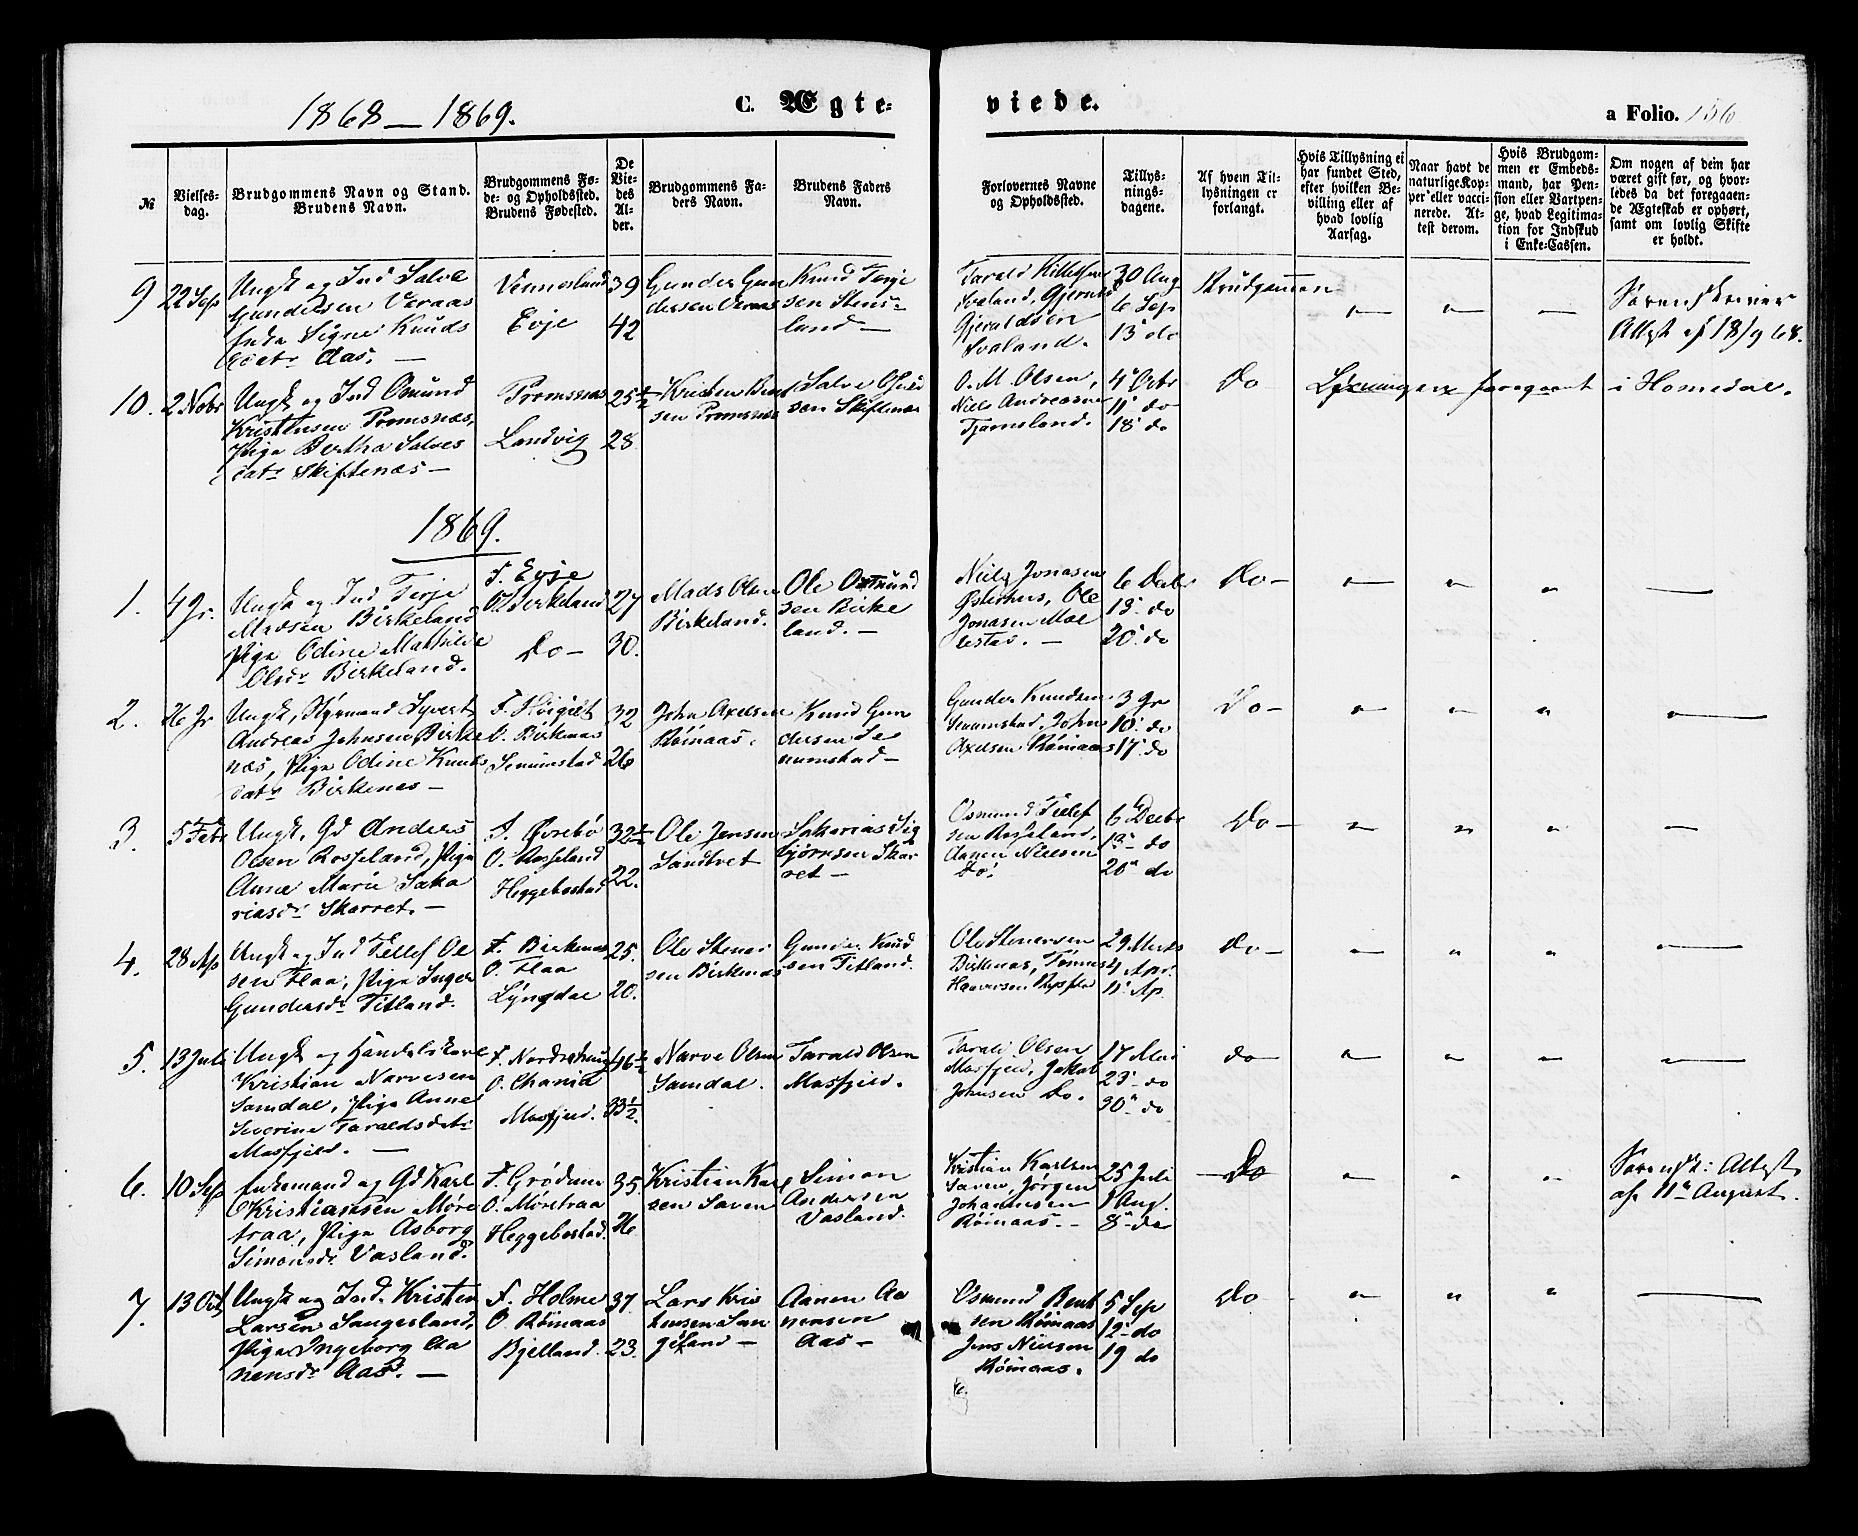 1868 — 1869.
C. Ægte-
viede.
a Folio. 156
№
Vielses-
dag.
Brudgommens Navn og Stand.
Brudens Navn.
Brudgommens Fø-
de- og Opholdssted.
Brudens Fødested.
De
Vie-
des
Al-
der.
Brudgommens Fa-
ders Navn.
Brudens Faders
Navn.
Forlovernes Navne
og Opholdssted.
Tillys-
nings-
dagene.
Af hvem Til-
lysningen er
forlangt.
Hvis Tillysning ei
har fundet Sted,
efter hvilken Be-
villing eller af
hvad lovlig
Aarsag.
Naar havt de
naturlige Kop-
per eller vacci-
nerede. At-
test derom.
Hvis Brudgom-
men er Embeds-
mand, har Pen-
sion eller Vartpen-
ge, hvad Legitima-
tion for Indskud
i Enke-Cassen.
Om nogen af dem har
været gift før, og hvor-
ledes da det foregaaen-
de Ægteskab er ophørt,
samt om lovlig Skifte
er holdt.
9
22 Sep
Ungk og Ind Salve
Gundersen Veraas
Enke Signe Knuds
datr Aas. —
Vennesland
Evje
39
42
Gunder Gun
dersen Veraas
Knud Terje
sen Stens-
land —
Tarald Killefsen
Svaland, Gjermd
Gjeruldsen
Svaland.
30 Aug
6 Sep
13 do
Brudgommen
Sorenskriver
Attest af 18/9 68.
10.
2 Nobr
Ungk og Ind Osmund
Kristensen Tromsnæs,
Pige Bertha Salves
datr Skiftenæs —
Tromsnæs
Landvig
25½
28
Kristen Bent
sen Tromsnæs
Salve
sen Skiftenæs
O. M. Olsen,
Niels Andreasen
Tjamsland.
4 Octbr
11 do
18 do
Do
Lysningen foregaaet i Homedal.
1869.
1.
4 Jr.
Ungk og Ind Terje
Madsen Birkeland
Pige Odine Mathilde
Olsdr Birkeland.
F. Evje
O. Birkeland
Do —
27
30.
Mads Olsen
Birkeland.
Ole Osmund
sen Birke
land. —
Niels Jonasen
Østerhus, Ole
Jonasen Mol
lestad. —
6 Decbr
13. do
20. do
Do —
2.
26 Jr
Ungk, Styrmand Syvert
Andreas Johnsen Birke
næs, Pige Odine Knuds
datr Birkenes —
F. Høigilt
O. Birkenæs
Senumstad
32
26
John Axelsen
Rømaas.
Knud Gun
dersen Se
numstad —
Gunder Knudsen
Senumstad, John
Axelsen Rømaas
3 Jr
10. do
17. do
Do —
3.
5 Febr
Ungk. Gd Anders
Olsen Rosseland, Pige
Anne Marie Saka
riasdr Skarret. —
F. Øvrebø
O. Rosseland
Heggebostad
32½
22.
Ole Jensen
Sandvet
Sakarias Sig
bjørnsen Skar
ret —
Osmund Tellef
sen Rosseland,
Aanen Nielsen
Do.
6 Decbr
13 do
20 do
Do —
4.
28 Ap
Ungk og Ind Tellef Ol
sen Flaa, Pige Inger
Gundersdr Titland.
F. Birkenæs
O. Flaa
Lyngdal
25.
20.
Ole Stener
sen Birkenæs
Gunder Knud
sen Titland.
Ole Stenersen
Birkenæs, Tønnes
29 Marts
4 Apr.
11 Ap.
Do —
5.
13 Juli
Ungk og Handelskarl
Kristian Narvesen
Samdal, Pige Anne
Severine Taraldsdatr
Mosfjeld. —
Mosfjeld.
46½
33½.
Narve Olsen
Samdal.
Tarald Olsen
Mosfjeld.
Tarald Olsen
Mosfjeld, Jakob
Johnsen Do.
17 Mai
23 do
30 do
Do —
6.
10 Sep
Enkemand og Gd Karl
Kristiansen Møre
traa, Pige Asborg
Simonsdr Vasland.
F. Grødum
O. Møretraa
Heggebostad.
35.
26
Kristian Karl
sen Saven
Simon
Andersen
Vasland.
Kristian Karlsen
Saven, Jørgen
Johannesen
Rømaas. —
25 Juli
1 Aug.
8 do
Do
Sorensk: Attest
af 11te August.
7.
13 Oct
Ungk og Ind. Kristen
Larsen Sangesland,
Pige Ingeborg Aa
nensdr Aas. —
F. Holme
O. Rømaas
Bjelland.
37
23.
Lars Kris
tensen San
gesland —
Aanen Aa
nensen
Aas —
Osmund Bent
sen Rømaas
Jens Nielsen
Rømaas.
5 Sep
12 do
19 do
Do